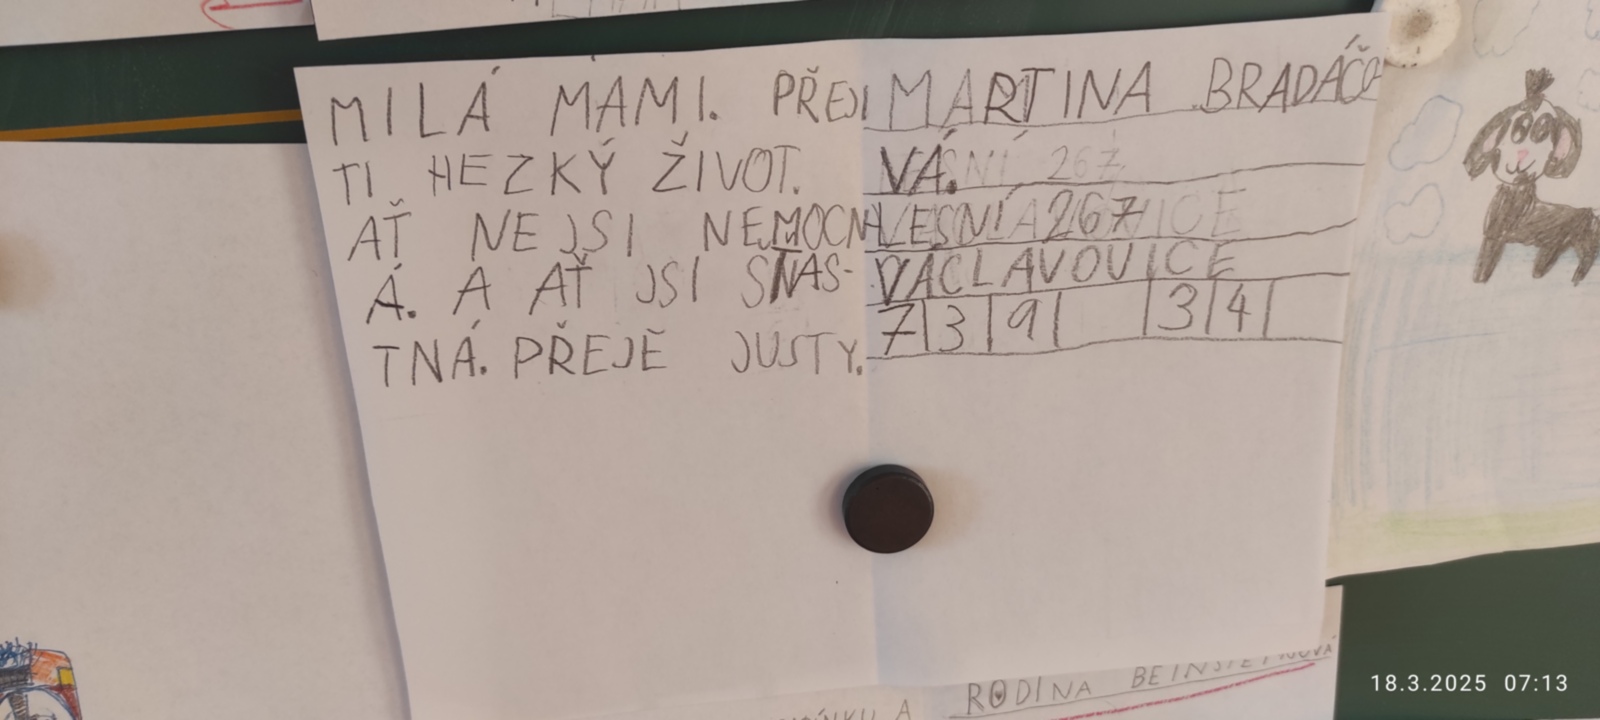 MILÁ MAMI. PŘEJI
TI HEZKÝ ŽIVOT.
AŤ NEJSI NEMOCN
Á. A AŤ JSI SŤAS-
TNÁ. PŘEJE JUSTY.
MARTINA BRADÁČO
VÁ.
LESNÍ 267
VÁCLAVOVICE
739 34
RODINA
18.3.2025 07:13